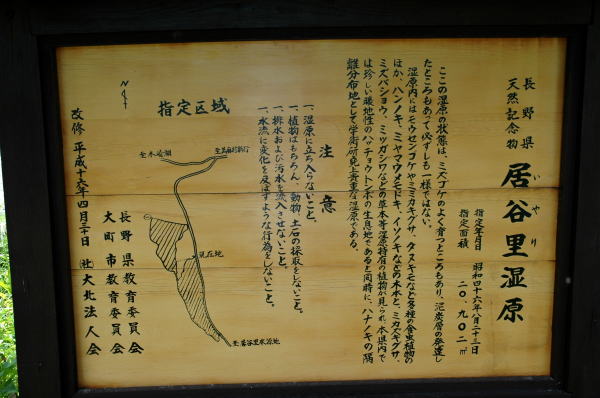 長野県
天然記念物
居谷里湿原
いやり
指定年月日 昭和四十六年八月二十三日
指定面積 二〇、九〇二㎡
ここの湿原の状態は、ミズゴケのよく育つところもあり、泥炭層の発達し
たところもあて必ずしも一様ではない。
湿原内にはモウセンゴケやミミカキグサ、タヌキモなど多種の食虫植物の
ほか、ハンノキ、ミヤマウメモドキ、イソノキなどの木本と、ミカヅキグサ、
ミズバショウ、ミツガシワなどの草本等湿原特有の植物が見られ、本県内で
は珍しい暖地性のハッチョウトンボの生息地であると同時に、ハナノキの隔
離分布地として学術研究上貴重な湿原である。
注意
一、湿原に立ち入らないこと。
一、植物はもちろん、動物、土石の採取をしないこと。
一、排水および汚水を流入させないこと。
一、水流に変化を及ぼすような行為をしないこと。
指定区域
N
至木崎湖
現在地
至居谷里水源地
長野県教育委員会
大町市教育委員会
改修 平成十六年四月三十日 ㈳大北法人会